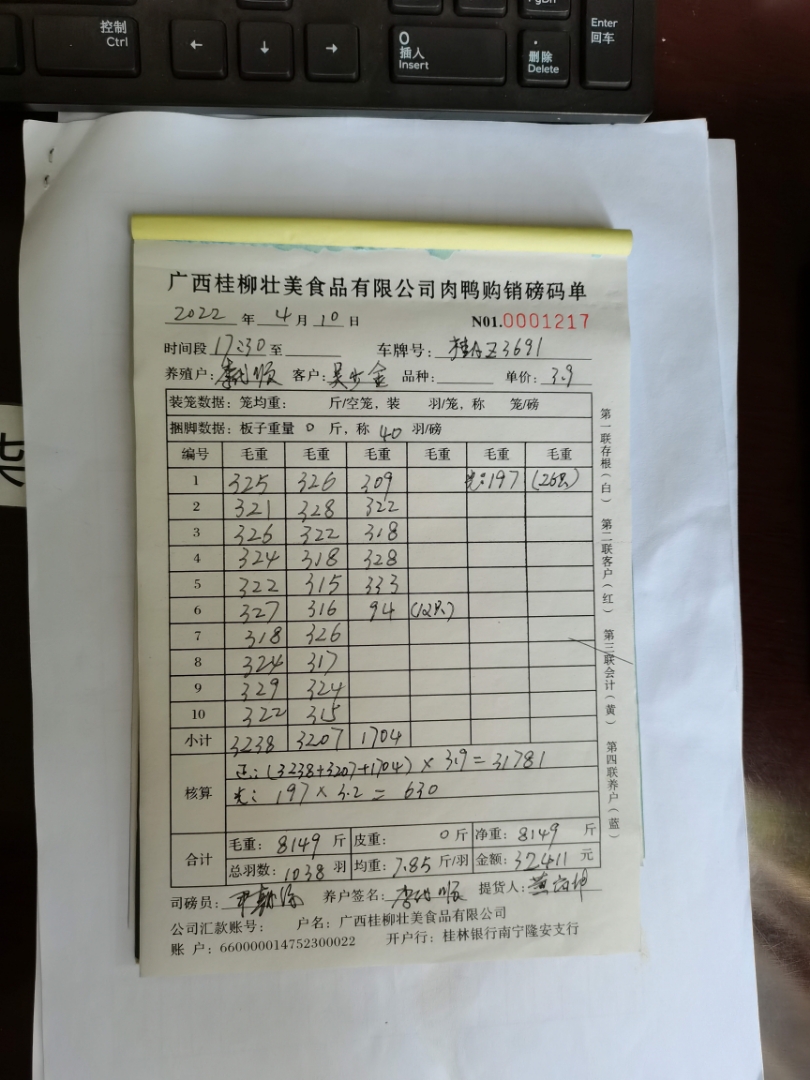 控制
Ctrl
←
↓
→
0
插入
Insert
.
删除
Delete
Enter
回车
广西桂柳壮美食品有限公司肉鸭购销磅码单
2022 年 4 月 10 日 N01.0001217
时间段 17:30 至 车牌号: 桂A Z3691
养殖户: 客户: 吴 金 品种: 单价: 3.9
装笼数据: 笼均重: 斤/空笼, 装 羽/笼, 称 笼/磅
捆脚数据: 板子重量 0 斤, 称 40 羽/磅
编号 毛重 毛重 毛重 毛重 毛重 毛重
1 325 326 309 光: 197 (26只)
2 321 328 322
3 326 322 318
4 324 318 328
5 322 315 333
6 327 316 94 (12只)
7 318 326
8 324 317
9 329 324
10 322 315
小计 3238 3207 1704
核算 正: (3238+3207+1704) × 3.9 = 31781
光: 197 × 3.2 = 630
合计 毛重: 8149 斤 皮重: 0 斤 净重: 8149 斤
总羽数: 1038 羽 均重: 7.85 斤/羽 金额: 32411 元
司磅员: 养户签名: 提货人:
公司汇款账号: 户名: 广西桂柳壮美食品有限公司
账 户: 660000014752300022 开户行: 桂林银行南宁隆安支行
第一联存根(白) 第二联客户(红) 第三联会计(黄) 第四联养户(蓝)